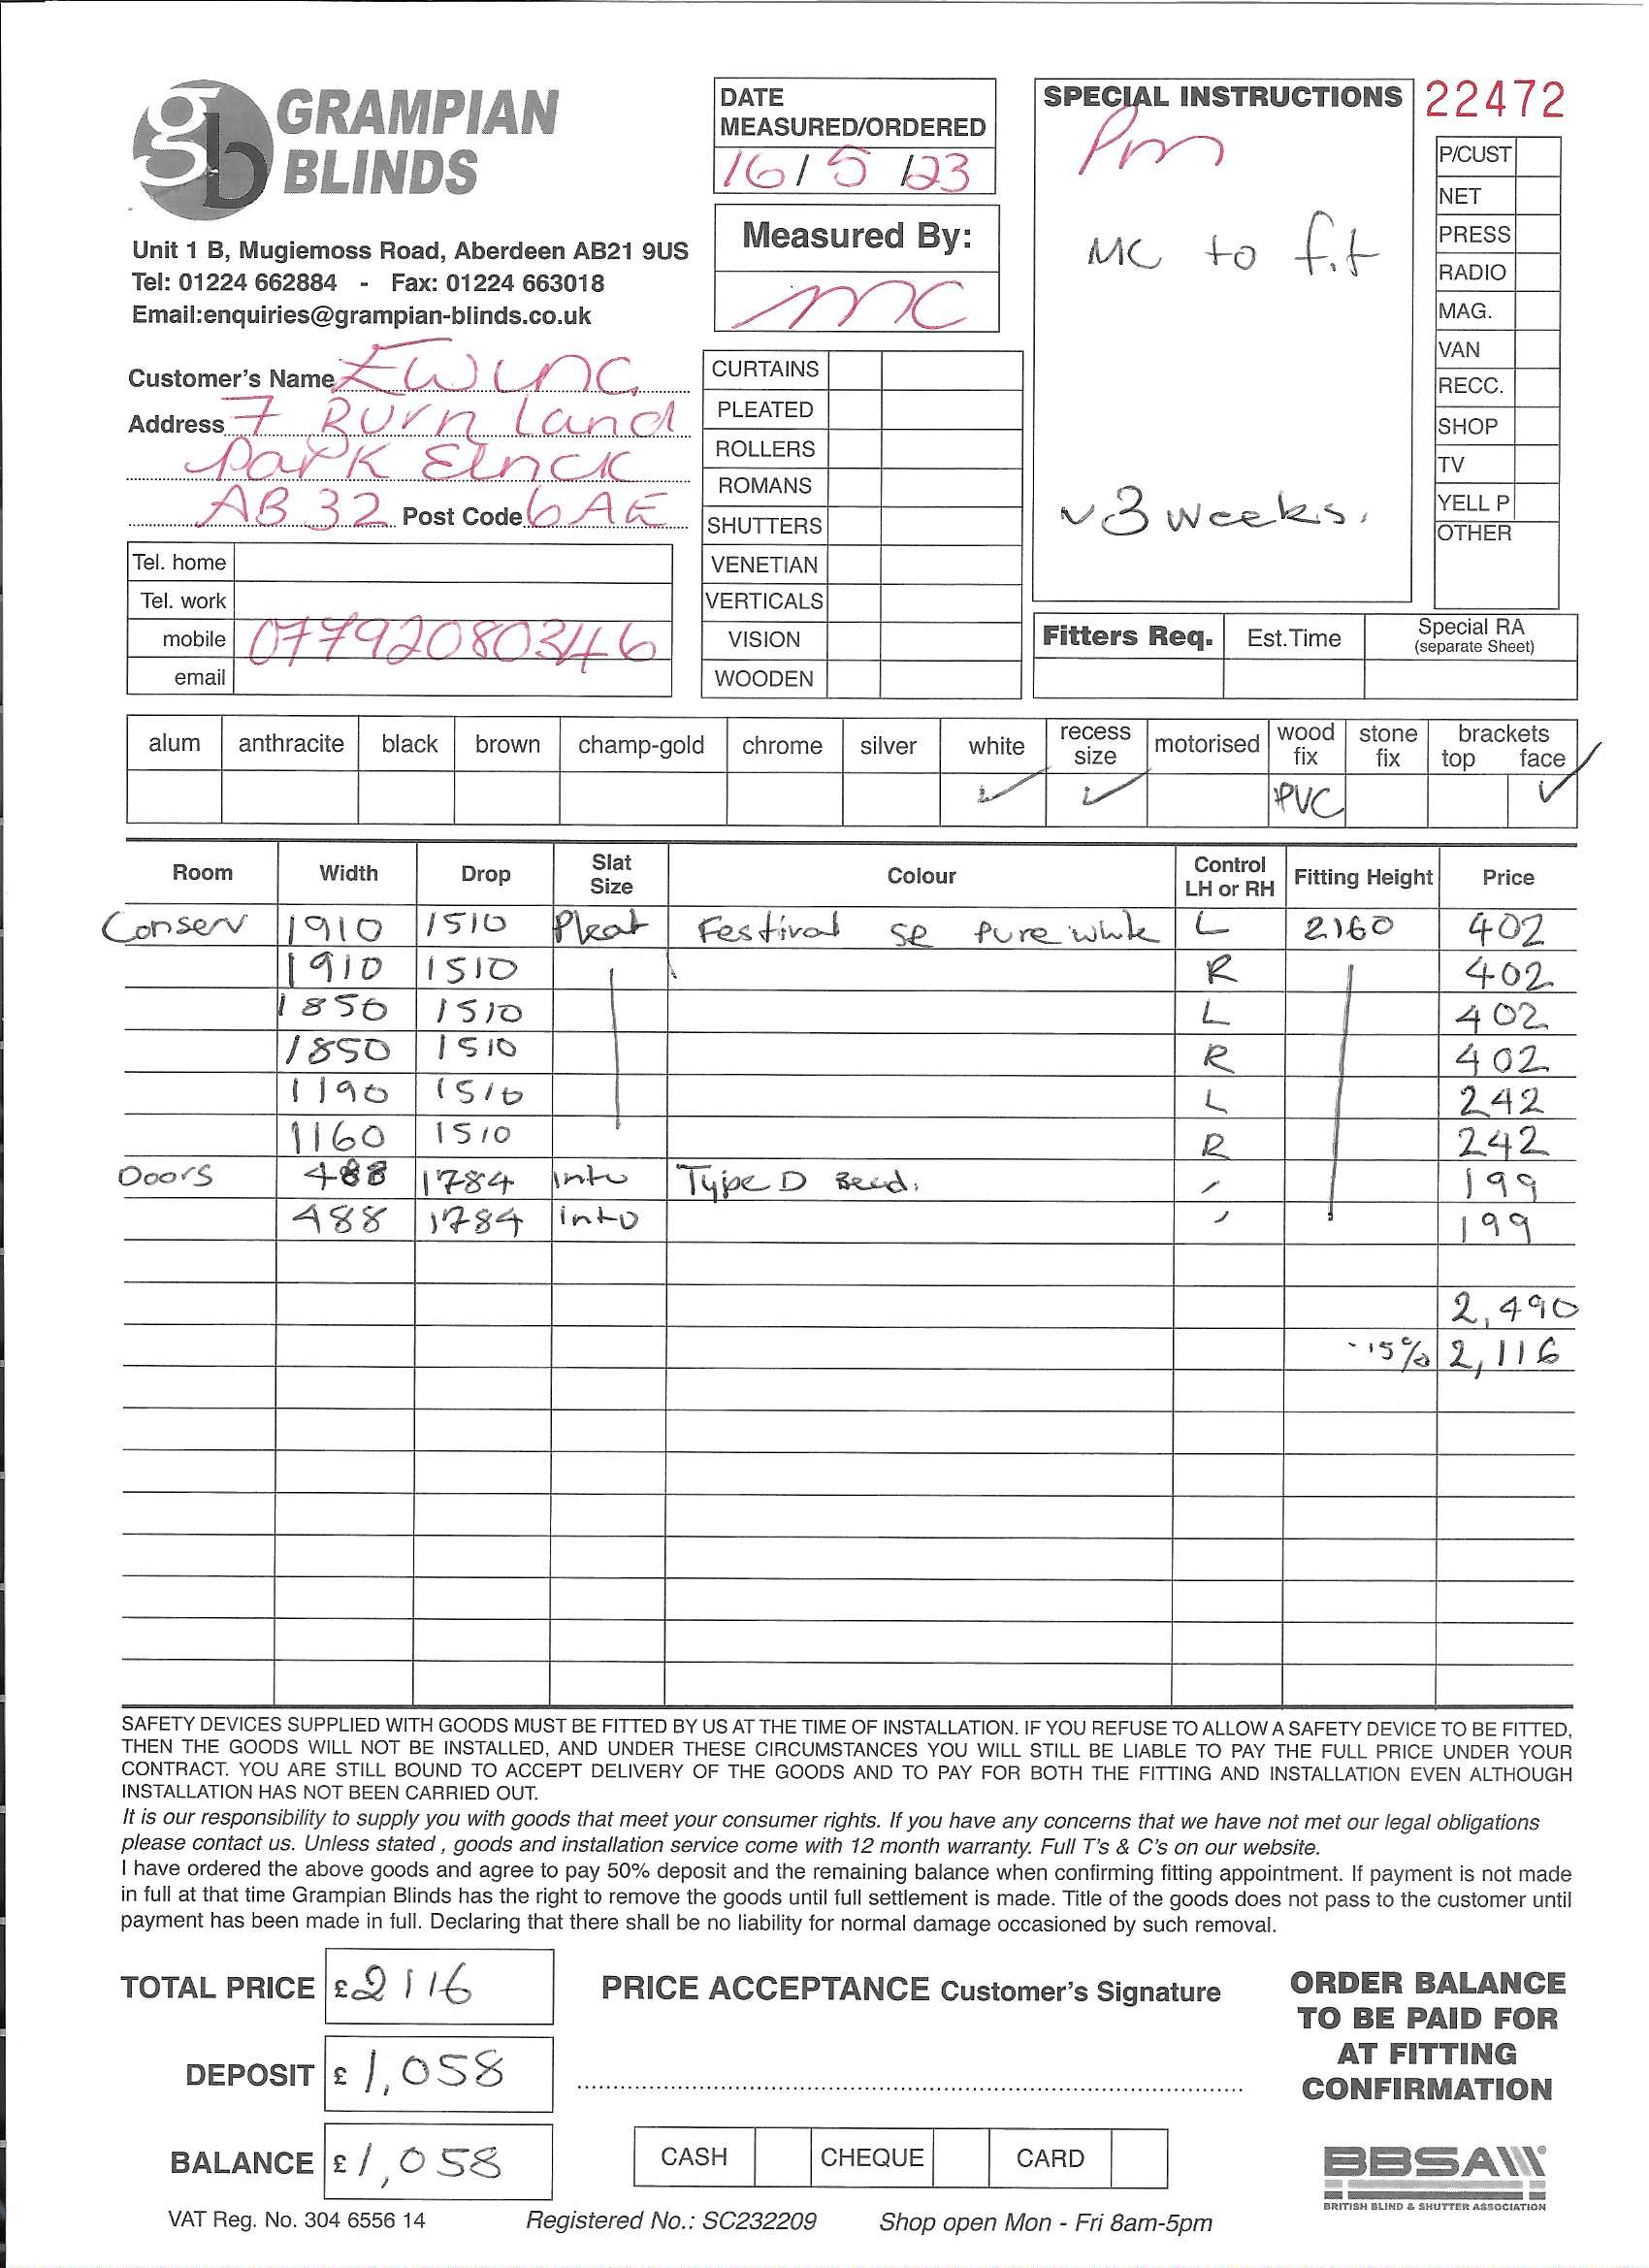 GRAMPIAN
BLINDS
Unit 1 B, Mugiemoss Road, Aberdeen AB21 9US
Tel: 01224 662884 - Fax: 01224 663018
Email:enquiries@grampian-blinds.co.uk
DATE
MEASURED/ORDERED
16/5/23
Measured By:
MC
SPECIAL INSTRUCTIONS
Pm
MC to fit
~3 weeks.
22472
P/CUST
NET
PRESS
RADIO
MAG.
VAN
RECC.
SHOP
TV
YELL P
OTHER
Customer's Name
Address 7 Burn Land
Park
AB32 Post Code 6AE
Tel. home
Tel. work
mobile 07792080346
email
CURTAINS
PLEATED
ROLLERS
ROMANS
SHUTTERS
VENETIAN
VERTICALS
VISION
WOODEN
Fitters Req. Est.Time Special RA
(separate Sheet)
alum anthracite black brown champ-gold chrome silver white recess size motorised wood fix stone fix brackets top face
✓ ✓ PVC ✓
Room Width Drop Slat Size Colour Control LH or RH Fitting Height Price
Conserv 1910 1510 Pleat Festival SR Pure white L 2160 402
1910 1510 R 402
1850 1510 L 402
1850 1510 R 402
1190 1510 L 242
1160 1510 R 242
Doors 488 1784 Intu Type D Bead. 199
488 1784 intu 199
2,490
-15% 2,116
SAFETY DEVICES SUPPLIED WITH GOODS MUST BE FITTED BY US AT THE TIME OF INSTALLATION. IF YOU REFUSE TO ALLOW A SAFETY DEVICE TO BE FITTED,
THEN THE GOODS WILL NOT BE INSTALLED, AND UNDER THESE CIRCUMSTANCES YOU WILL STILL BE LIABLE TO PAY THE FULL PRICE UNDER YOUR
CONTRACT. YOU ARE STILL BOUND TO ACCEPT DELIVERY OF THE GOODS AND TO PAY FOR BOTH THE FITTING AND INSTALLATION EVEN ALTHOUGH
INSTALLATION HAS NOT BEEN CARRIED OUT.
It is our responsibility to supply you with goods that meet your consumer rights. If you have any concerns that we have not met our legal obligations
please contact us. Unless stated , goods and installation service come with 12 month warranty. Full T's & C's on our website.
I have ordered the above goods and agree to pay 50% deposit and the remaining balance when confirming fitting appointment. If payment is not made
in full at that time Grampian Blinds has the right to remove the goods until full settlement is made. Title of the goods does not pass to the customer until
payment has been made in full. Declaring that there shall be no liability for normal damage occasioned by such removal.
TOTAL PRICE £2116
DEPOSIT £1,058
BALANCE £1,058
PRICE ACCEPTANCE Customer's Signature
CASH CHEQUE CARD
ORDER BALANCE
TO BE PAID FOR
AT FITTING
CONFIRMATION
BBSA
BRITISH BLIND & SHUTTER ASSOCIATION
VAT Reg. No. 304 6556 14 Registered No.: SC232209 Shop open Mon - Fri 8am-5pm